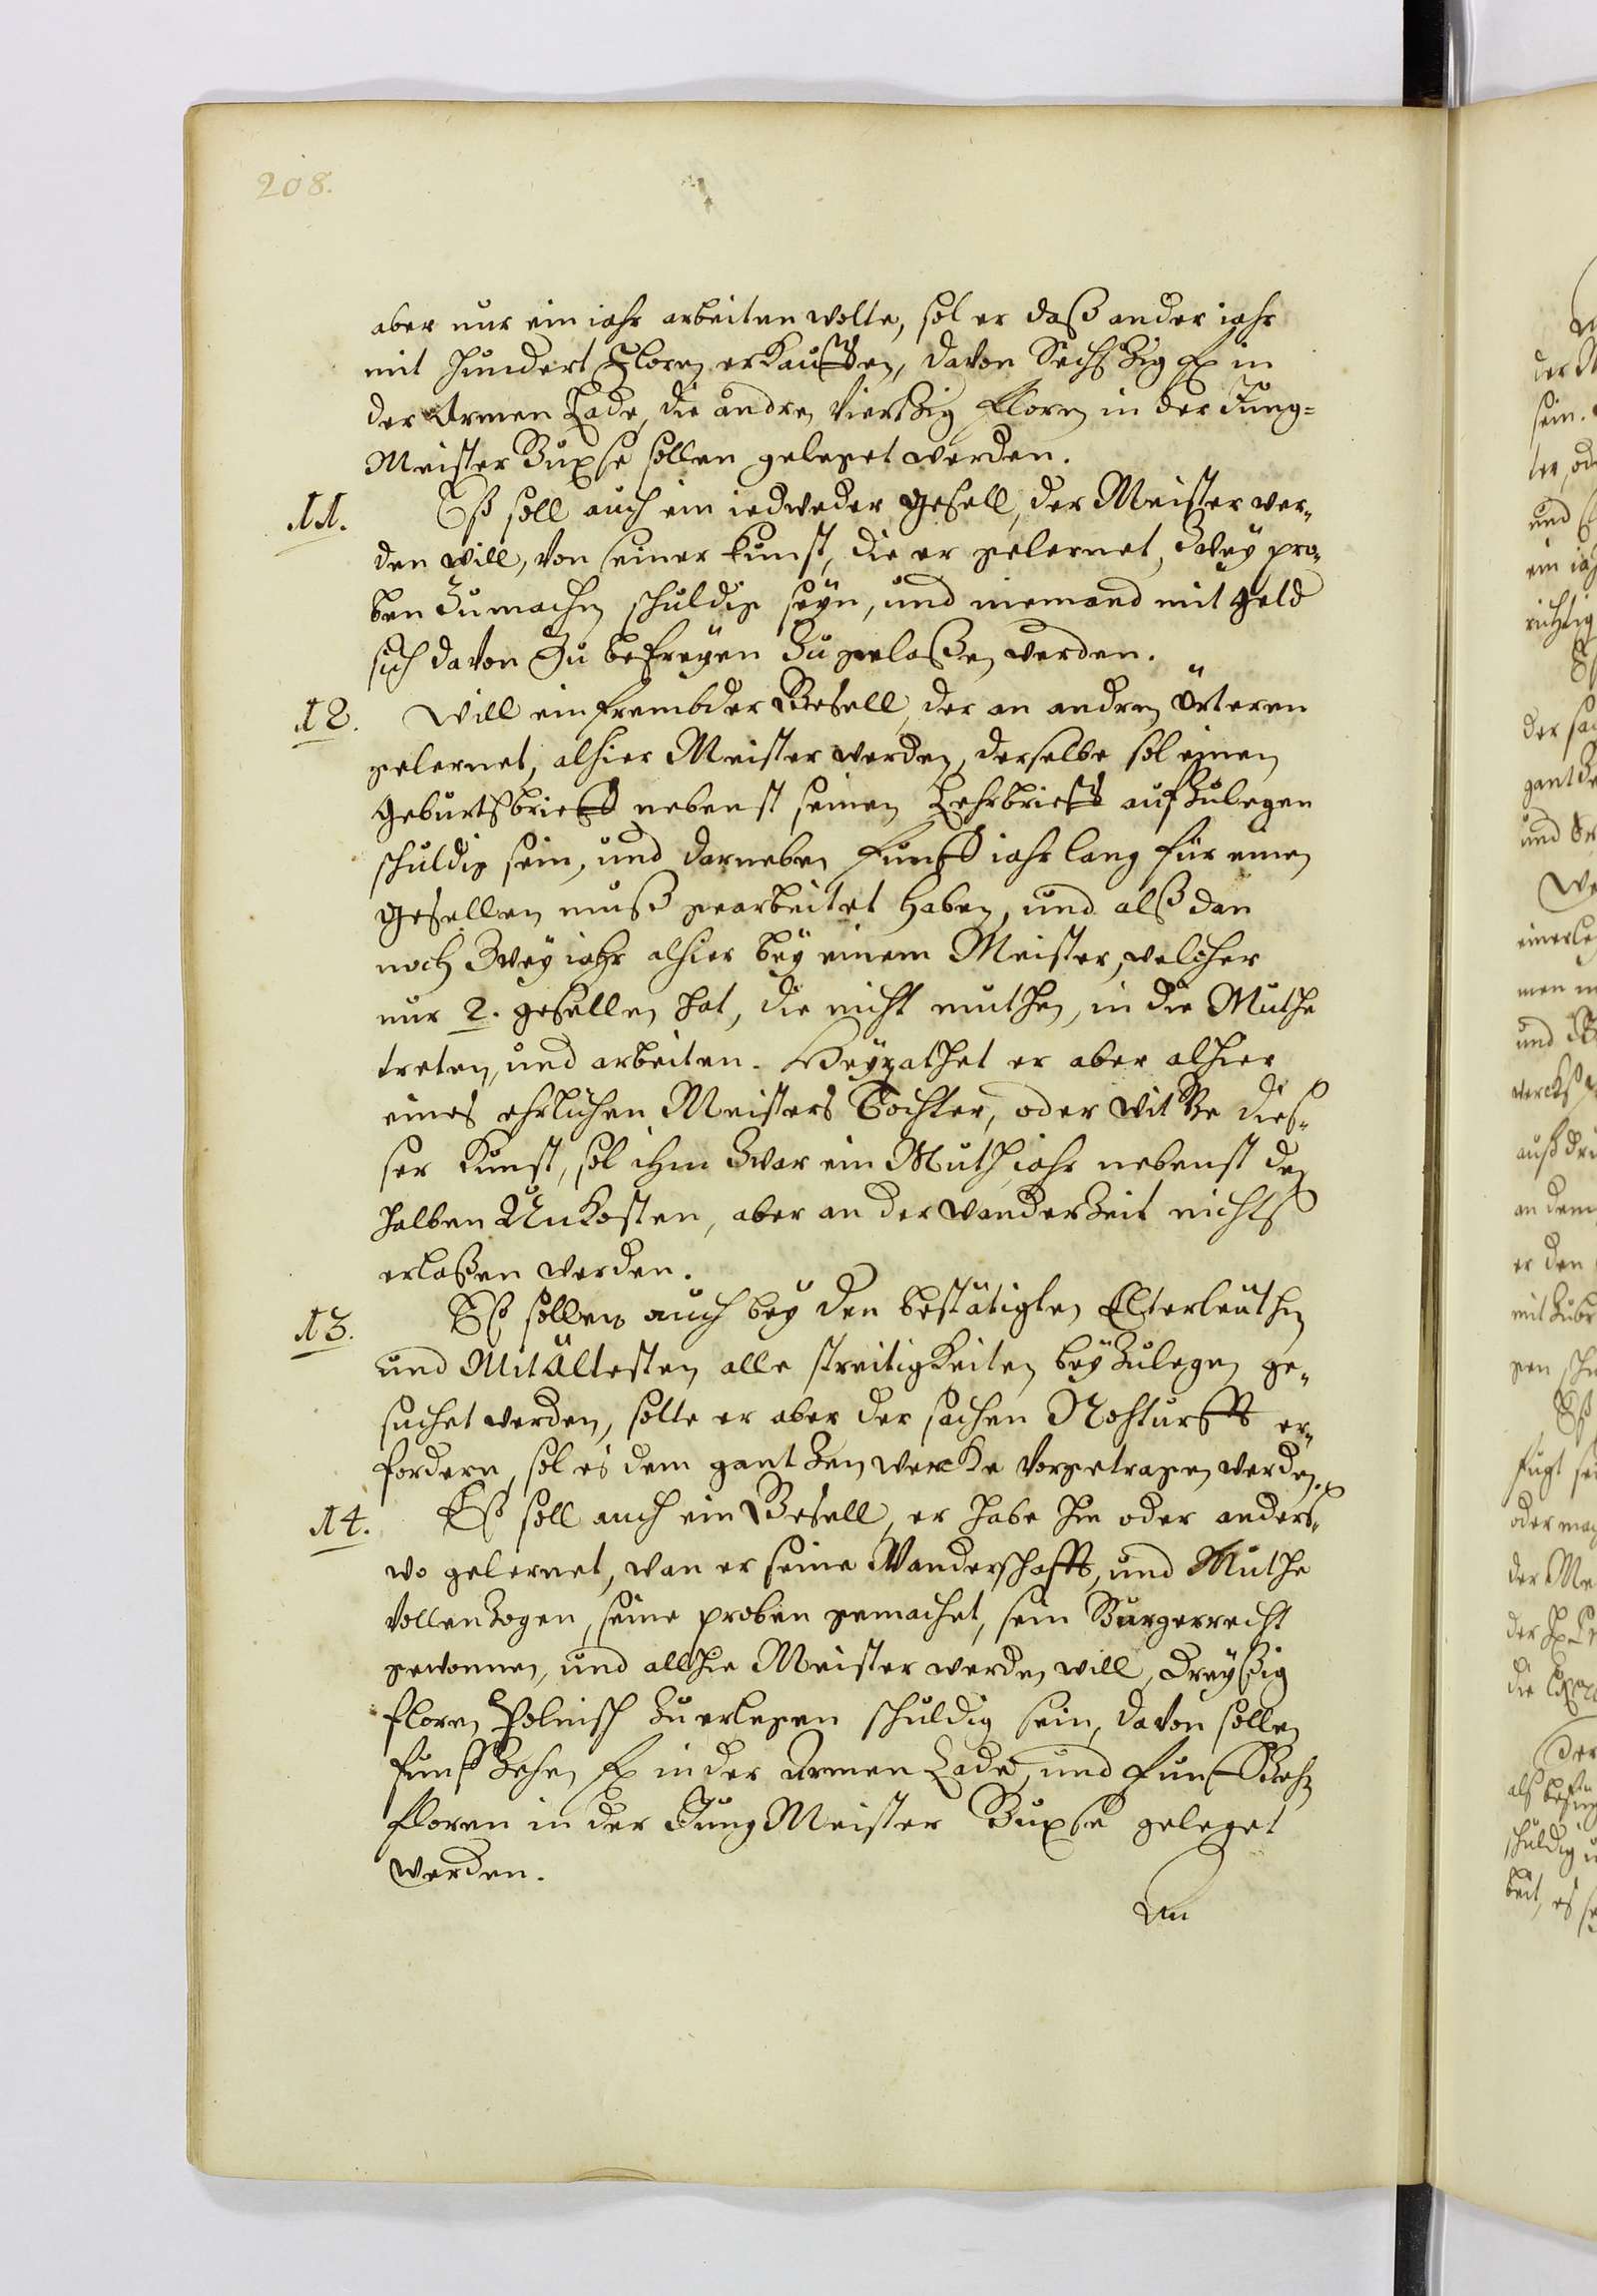 208.
aber nur ein iahr arbeiten wolte, sol er daß ander iahr
mit hundert Floren erkauffen, davon Sechßzig fl in
der Armen Lade, die andre Viertzig floren in der Jung=
Meister Buxse sollen geleget werden.
11. Eß soll auch ein iedweder gesell, der Meister wer¬
den will, von seiner kunst, die er gelernet, Zwey pro¬
ben Zu machen schuldig seyn, und niemand mit geld
sich davon Zu befreyen Zu gelaßen werden.
12. Will ein frembder Gesell, der an andren örteren
gelernet, alhier Meister werden, derselbe sol einen
geburtsbrieff nebenst seinen Lehrbrieff auf Zulegen
schuldig sein, und darneben funff iahr lang für einen
gesellen muß gearbeitet haben, und alß dan
noch Zwey iahr alhier bey einem Meister, welcher
nur 2. gesellen hat, die nicht muthen, in die Muthe
treten, und arbeiten. Heyrathet er aber alhier
eines ehrlichen Meisters Tochter, oder witbe dies¬
ser Kunst, sol ihm Zwar ein Muth iahr nebenst den
halben Unkosten, aber an der wander Zeit nichts
erlaßen werden.
13. Eß sollen auch bey den bestätigten Elterleuthen
und Mitältesten alle streitigkeiten bey Zulegen ge¬
suchet werden, solte er aber der sachen Nohturfft er¬
fordern, sol es dem gantzen wercke vorgetragen werden.
14. Eß soll auch ein Gesell, er habe hie oder anders¬
wo gelernet, wan er seine Wanderschafft, und Muthe
Vollenzogen, seine proben gemachet, sein Burgerrecht
gewonnen, und allhie Meister werden will, Dreyßig
floren Polnisch Zu erlegen schuldig sein, davon sollen
funff Zehen fl in der Armen Lade, und funff Zehen
floren in der Jung Meister Buxse geleget
werden.